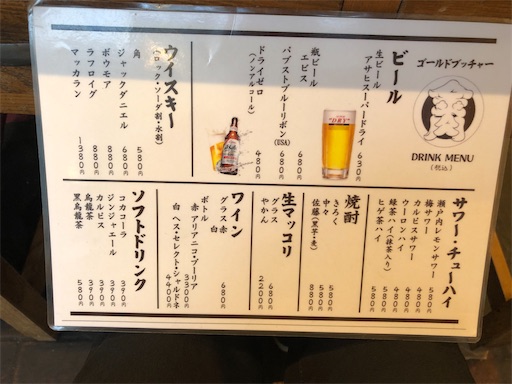 ゴールドブッチャー
DRINK MENU
(税込)
ビール
生ビール
アサヒスーパードライ 630円
瓶ビール
エビス 680円
パブストブルーリボン(USA) 680円
ドライゼロ
(ノンアルコール) 480円
ウイスキー
(ロック・ソーダ割・水割)
角 580円
ジャックダニエル 680円
ボウモア 880円
ラフロイグ 880円
マッカラン 1380円
サワー・チューハイ
瀬戸内レモンサワー 580円
梅サワー 480円
カルピスサワー 480円
ウーロンハイ 480円
緑茶ハイ(抹茶入り) 580円
ヒゲ茶ハイ 580円
焼酎
きろく 580円
中々 580円
佐藤(黒芋・麦) 880円
生マッコリ
グラス 680円
やかん 2200円
ワイン
グラス 赤 680円
白
ボトル
赤 アリアニコ・プーリア 3300円
白 ヘス・セレクト・シャルドネ 4400円
ソフトドリンク
コカコーラ 390円
ジンジャエール 390円
カルピス 390円
烏龍茶 390円
黒烏龍茶 580円